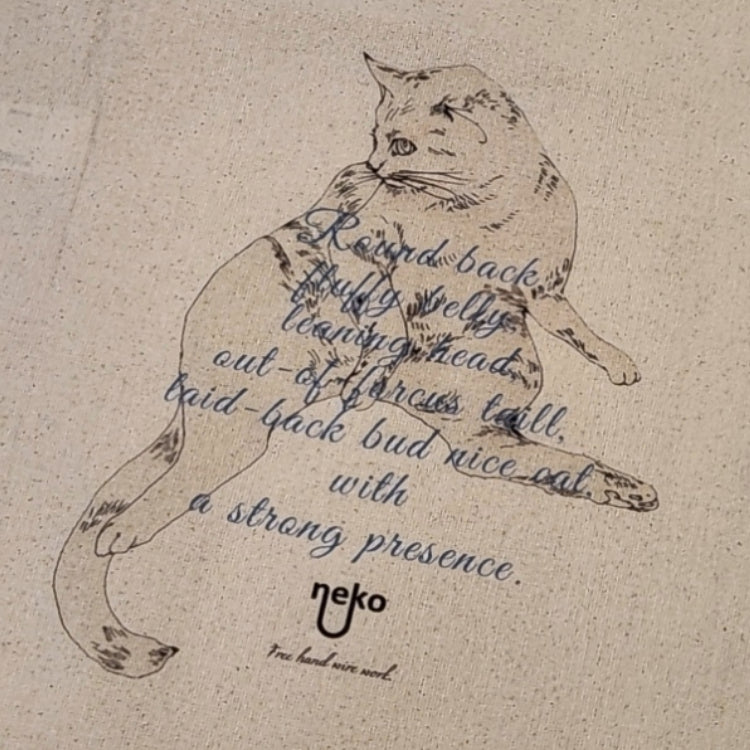 Round back
fluffy belly
leaning head,
out-of furcus taill,
laid-back bud nice cat.
with
a strong presence.
neko
Free hand wire work.